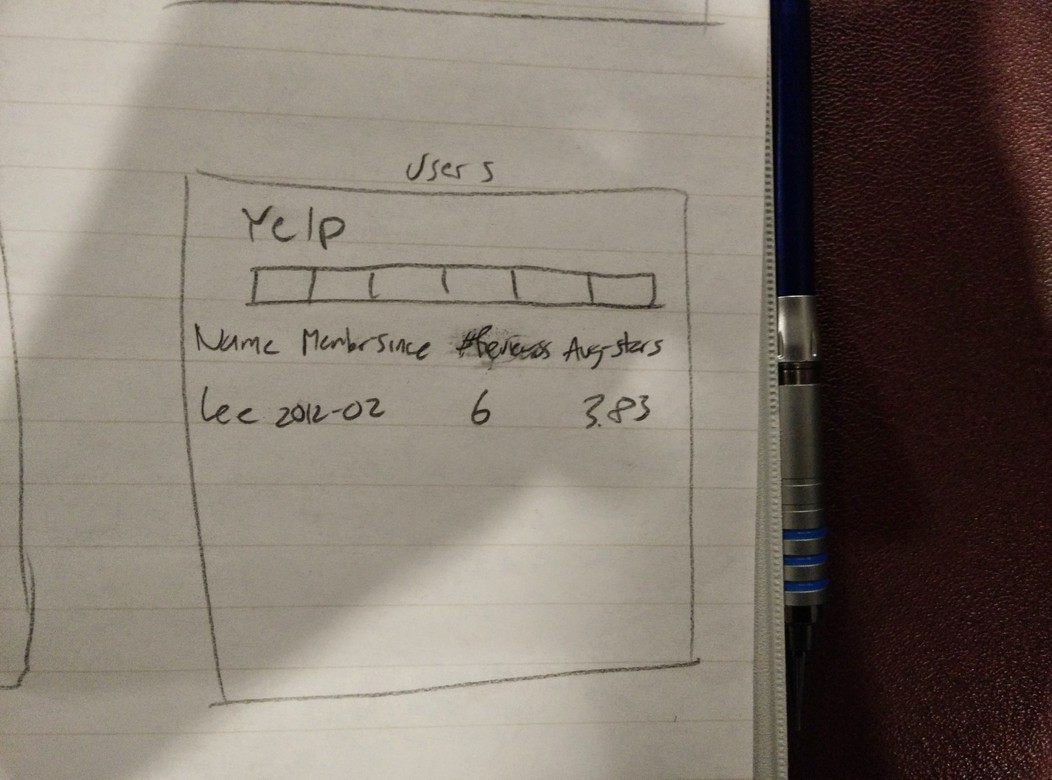 Users
Yelp
Name MembrSince #Reviews Avg-stars
Lee 2012-02 6 3.83